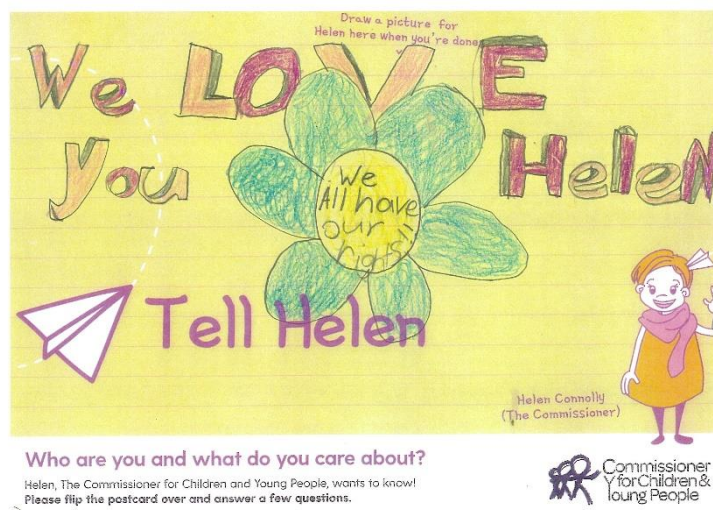 Draw a picture for
Helen here when you're done
We LOVE
You Helen
We
All have
our
rights!!
Tell Helen
Helen Connolly
(The Commissioner)
Who are you and what do you care about?
Helen, The Commissioner for Children and Young People, wants to know!
Please flip the postcard over and answer a few questions.
Commissioner
for Children &
Young People